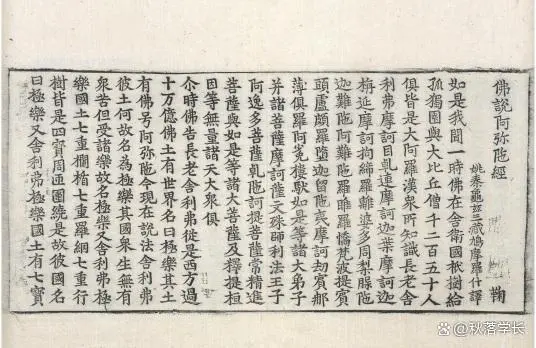 佛說阿弥陁經
姚秦龜兹三藏鳩摩羅什譯
鞠
如是我聞一時佛在舍衛國祇樹給
孤獨園與大比丘僧千二百五十人
俱皆是大阿羅漢衆所知識長老舍
利弗摩訶目乹連摩訶迦葉摩訶迦
栴延摩訶拘絺羅離婆多周梨槃陁
迦難陁阿難陁羅睺羅憍梵波提賓
頭盧頗羅墮迦留陁夷摩訶劫賓那
薄俱羅阿㝹樓馱如是等諸大弟子
幷諸菩薩摩訶薩文殊師利法王子
阿逸多菩薩乹陁訶提菩薩常精進
菩薩與如是等諸大菩薩及釋提桓
因等無量諸天大衆俱
尒時佛告長老舍利弗從是西方過
十万億佛土有世界名曰極樂其土
有佛号阿弥陁今現在說法舍利弗
彼土何故名為極樂其國衆生無有
衆苦但受諸樂故名極樂又舍利弗極
樂國土七重欄楯七重羅網七重行
樹皆是四寶周迊圍繞是故彼國名
曰極樂又舍利弗極樂國土有七寶
@秋落学长